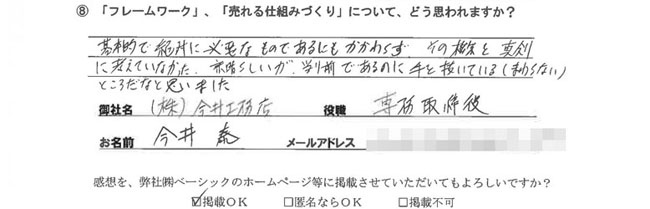 ⑧ 「フレームワーク」、「売れる仕組みづくり」について、どう思われますか？
基本的で絶対に必要なものであるにもかかわらず、その概念を真剣
に考えていなかった。素晴らしいが、当り前であるのに手を抜いている（まわらない）
ところだなと思いました
御社名 (株)今井工務店 役職 専務取締役
お名前 今井 泰 メールアドレス
感想を、弊社㈱ベーシックのホームページ等に掲載させていただいてもよろしいですか？
☑掲載ＯＫ □匿名ならＯＫ □掲載不可